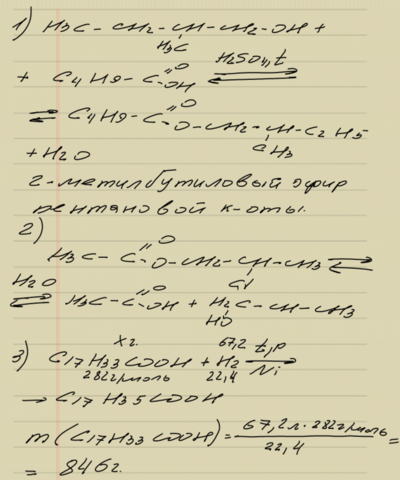 1) H3C - CH2 - CH - CH2 - OH +
H3C
+ C4H9 - C =O OH H2SO4, t
⇌ C4H9 - C =O O - CH2 - CH - C2H5
CH3
+ H2O
2-метилбутиловый эфир
пентановой к-оты.
2)
H3C - C =O O - CH2 - CH - CH3 ⇌
Cl
H2O
⇌ H3C - C =O OH + H2C - CH - CH3
HO
3) C17H33COOH + H2 t, p Ni →
x г. 67,2
282 г/моль 22,4
→ C17H35COOH
m(C17H33COOH) = 67,2 л · 282 г/моль / 22,4 =
= 846 г.